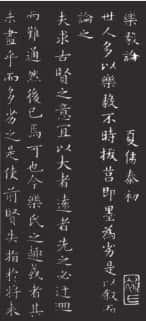 樂毅論 夏侯泰初
世人多以樂毅不時拔莒即墨為劣是以叙而
論之
夫求古賢之意宜以大者遠者先之必迂迴
而難通然後已焉可也今樂氏之趣或者其
未盡乎而多劣之是使前賢失指於將來